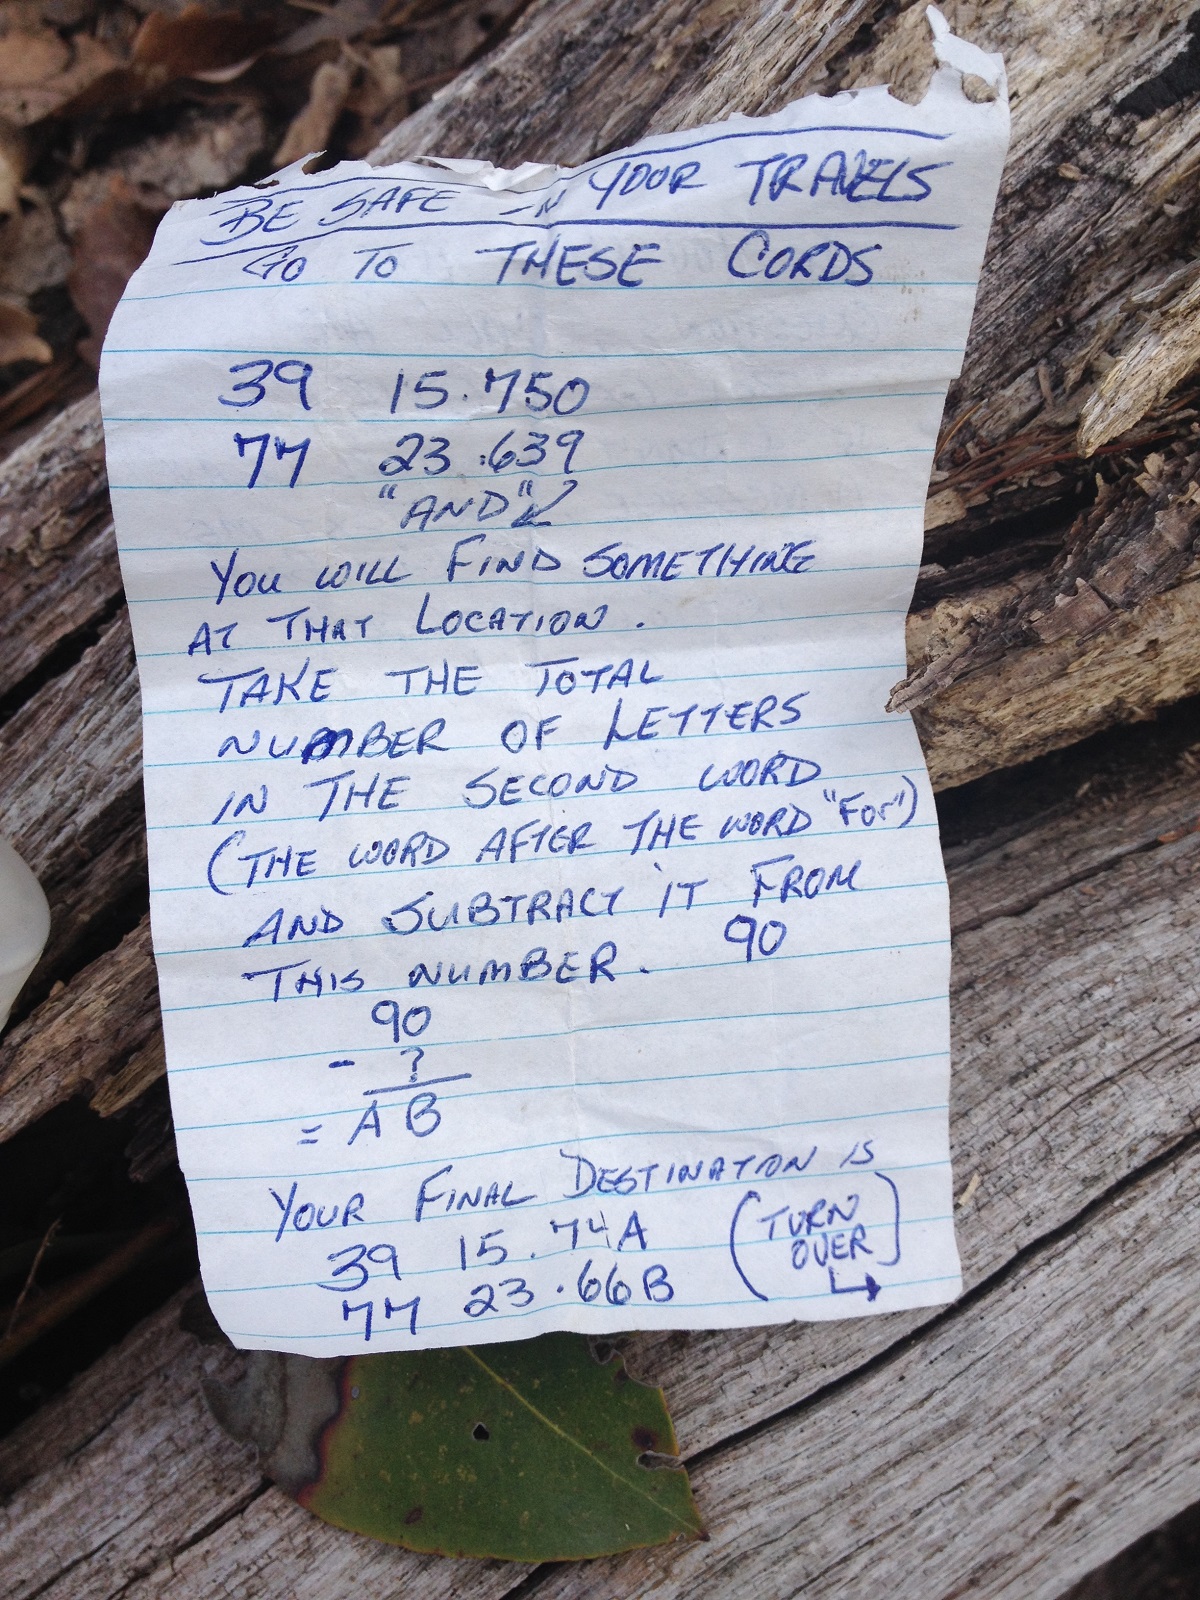 BE SAFE IN YOUR TRAVELS
GO TO THESE CORDS
39 15.750
77 23.639
"AND"↙
YOU WILL FIND SOMETHING
AT THAT LOCATION.
TAKE THE TOTAL
NUMBER OF LETTERS
IN THE SECOND WORD
(THE WORD AFTER THE WORD "For")
AND SUBTRACT IT FROM
THIS NUMBER. 90
90
- ?
= AB
YOUR FINAL DESTINATION IS
39 15.74A
77 23.66B
(TURN
OVER)